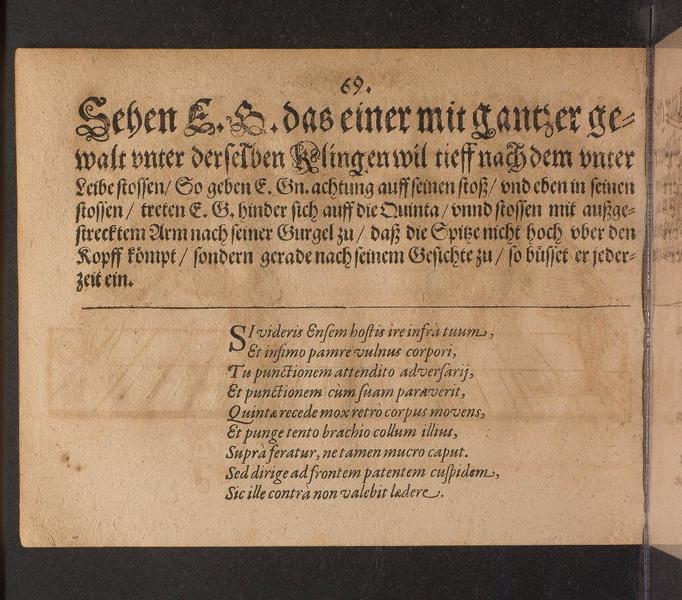 69.
Sehen E. G. das einer mit gantzer ge-
walt vnter derselben Klingen wil tieff nach dem vnter
Leibe stossen / So geben E. Gn. achtung auff seinen stoß / vnd eben in seinen
stossen / treten E. G. hinder sich auff die Quinta / vnnd stossen mit außge-
strecktem Arm nach seiner Gurgel zu / daß die Spitze nicht hoch vber den
Kopff kömpt / sondern gerade nach seinem Gesichte zu / so büsset er jeder-
zeit ein.
SI videris Ensem hostis ire infrà tuum,
Et infimo pamre vulnus corpori,
Tu punctionem attendito adversarij,
Et punctionem cùm suam paraverit,
Quintæ recede mox retrò corpus movens,
Et punge tento brachio collum illius,
Suprà feratur, ne tamen mucro caput.
Sed dirige ad frontem patentem cuspidem,
Sic ille contrà non valebit lædere.